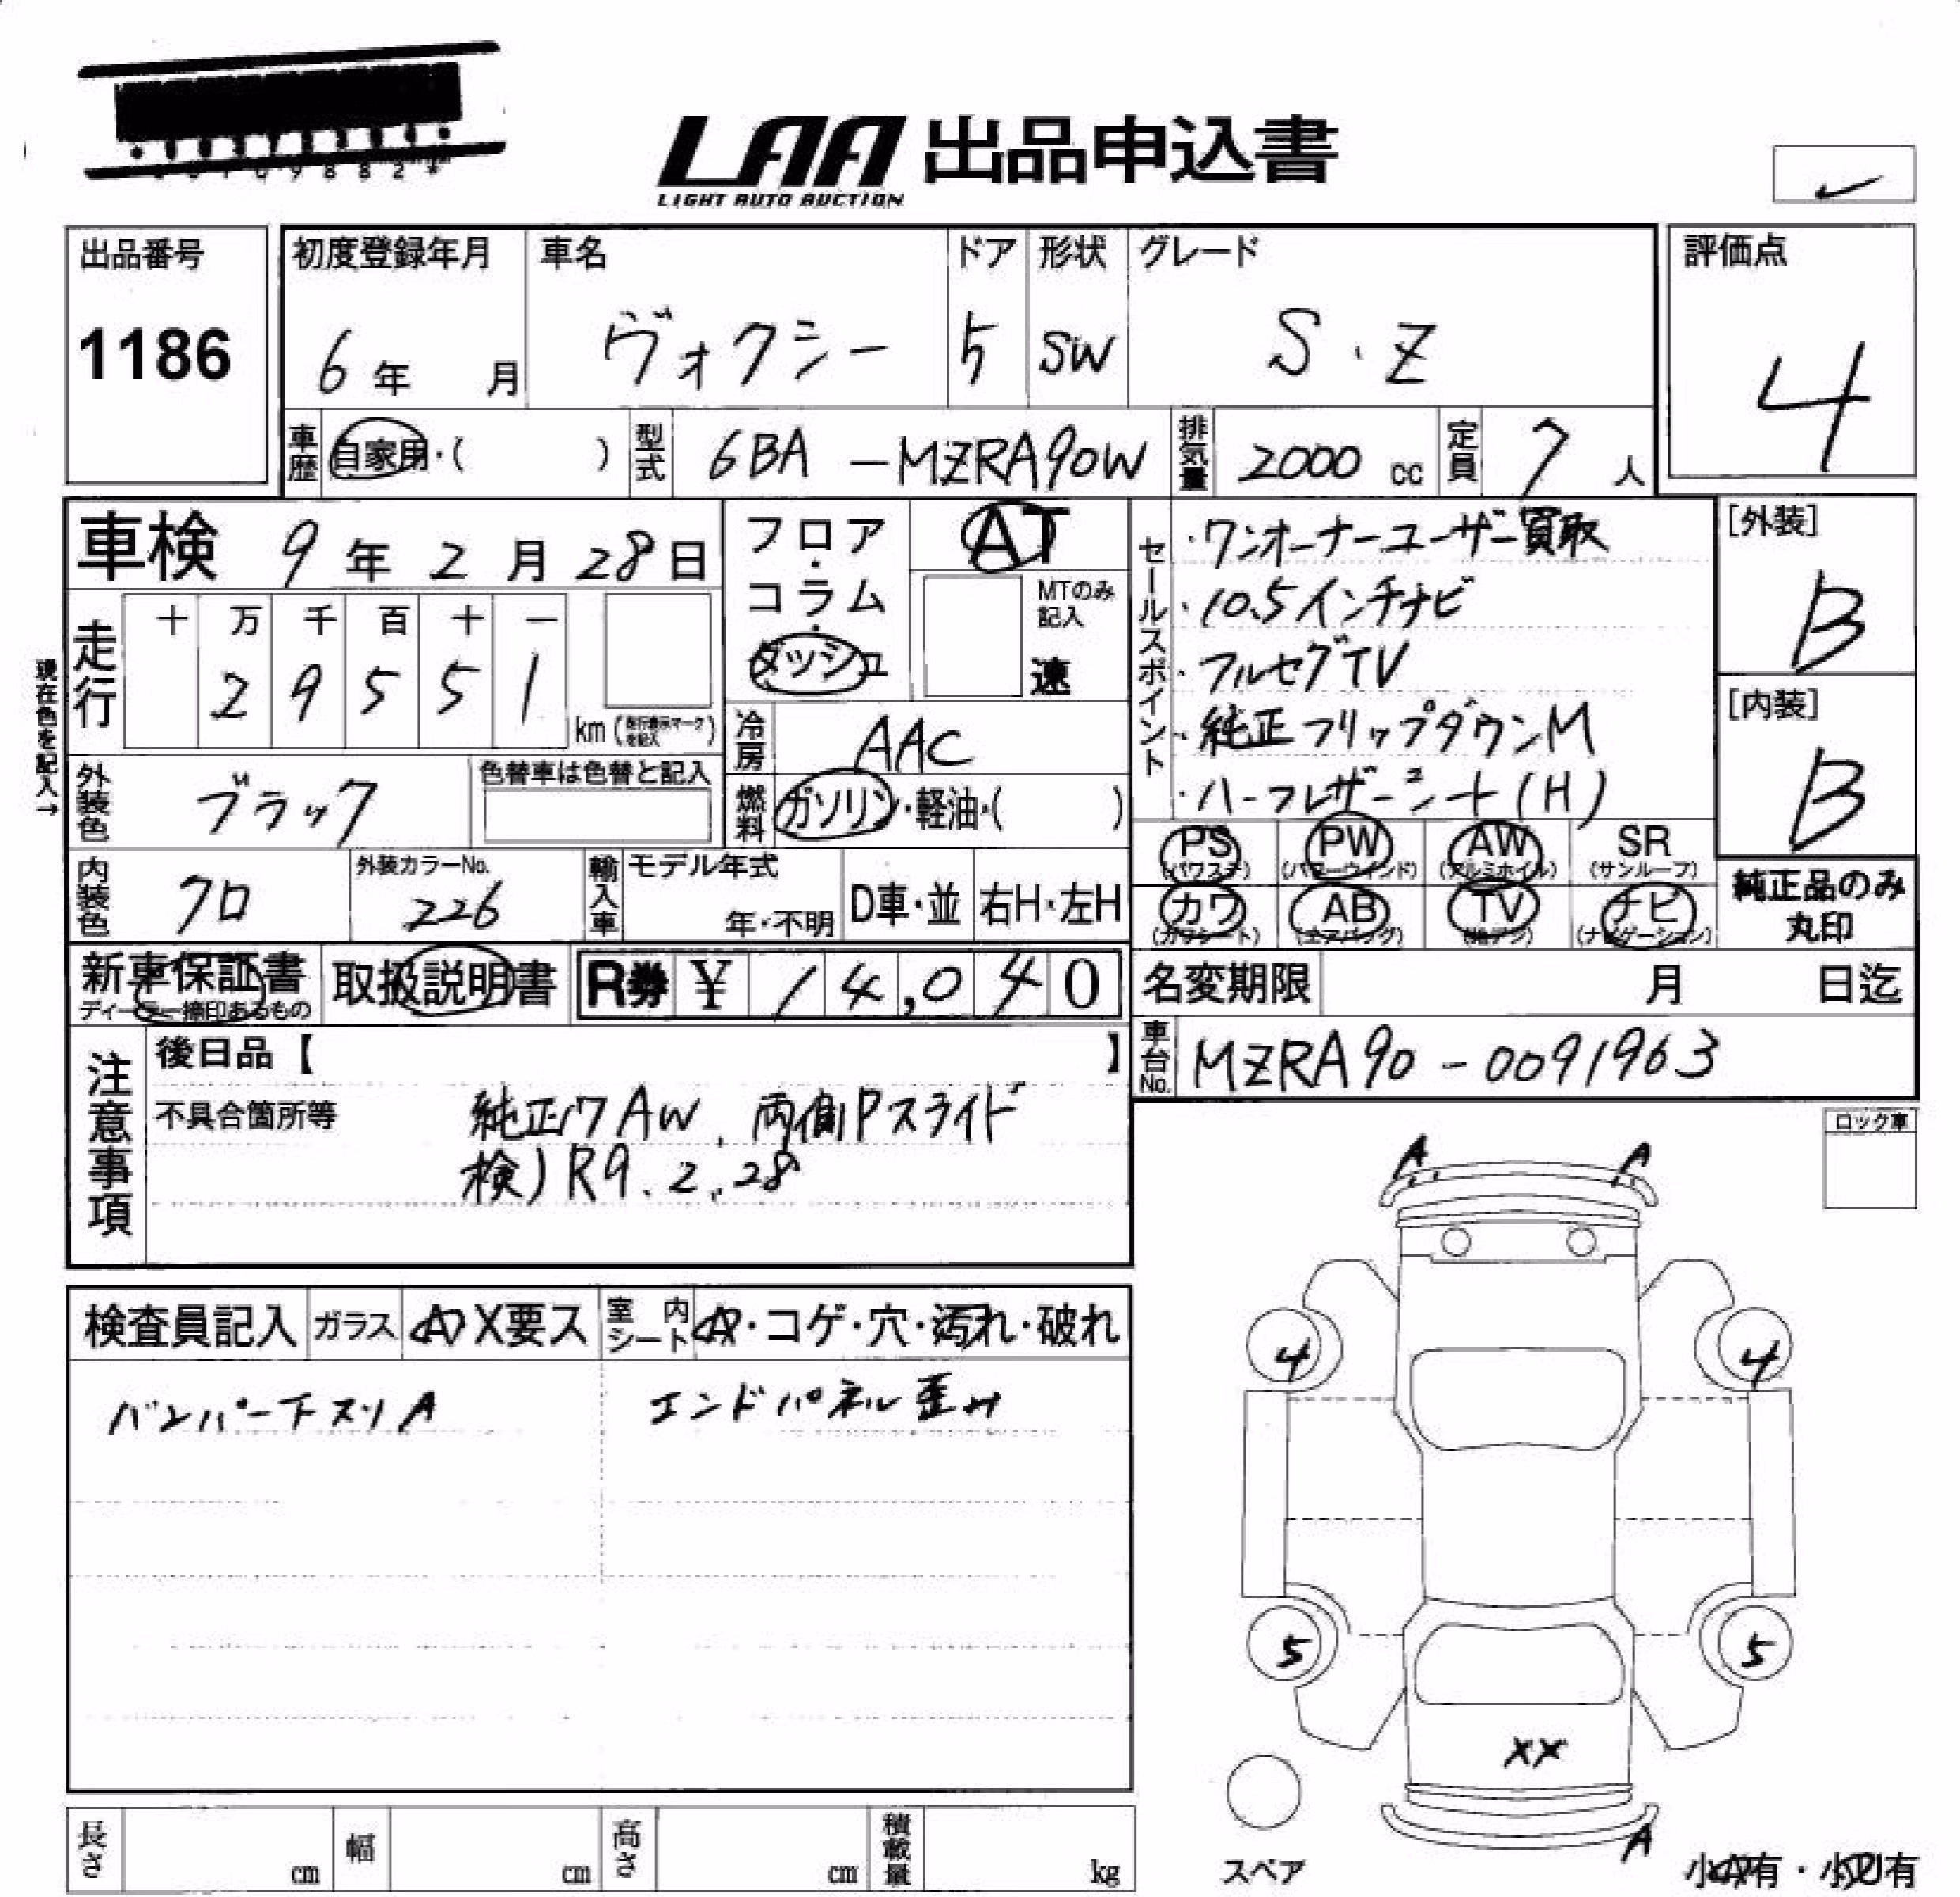 LAA 出品申込書
LIGHT AUTO AUCTION
出品番号
1186
初度登録年月
6年 月
車名
ヴォクシー
ドア
5
形状
SW
グレード
S・Z
評価点
4
車歴
自家用・( )
型式
6BA-MZRA90W
排気量
2000 cc
定員
7 人
車検 9年 2月 28日
フロア・コラム・ダッシュ
AT
MTのみ記入
速
セールスポイント
・ワンオーナーユーザー買取
・10.5インチナビ
・フルセグTV
・純正フリップダウンM
・ハーフレザーシート(H)
[外装]
B
[内装]
B
現在色を記入→
走行
十 万 千 百 十 一
2 9 5 5 1
km (走行表示マークを記入)
冷房
AAC
外装色
ブラック
色替車は色替と記入
燃料
ガソリン・軽油・( )
PS (パワステ)
PW (パワーウインド)
AW (アルミホイル)
SR (サンルーフ)
カワ (カワシート)
AB (エアバッグ)
TV (地デジ)
ナビ (ナビゲーション)
純正品のみ丸印
内装色
クロ
外装カラーNo.
226
輸入車
モデル年式
年・不明
D車・並
右H・左H
新車保証書
ディーラー捺印あるもの
取扱説明書
R券 ¥ 14,040
名変期限 月 日迄
車台No.
MZRA90-0091963
注意事項
後日品【 】
不具合箇所等
純正17AW、両側Pスライド
検)R9.2.28
ロック車
A A
検査員記入
ガラス
X要ス
室内シート
・コゲ・穴・汚れ・破れ
バンパー下スリA
エンドパネル歪み
4 4
5 5
XX
A
スペア
長さ cm
幅 cm
高さ cm
積載量 kg